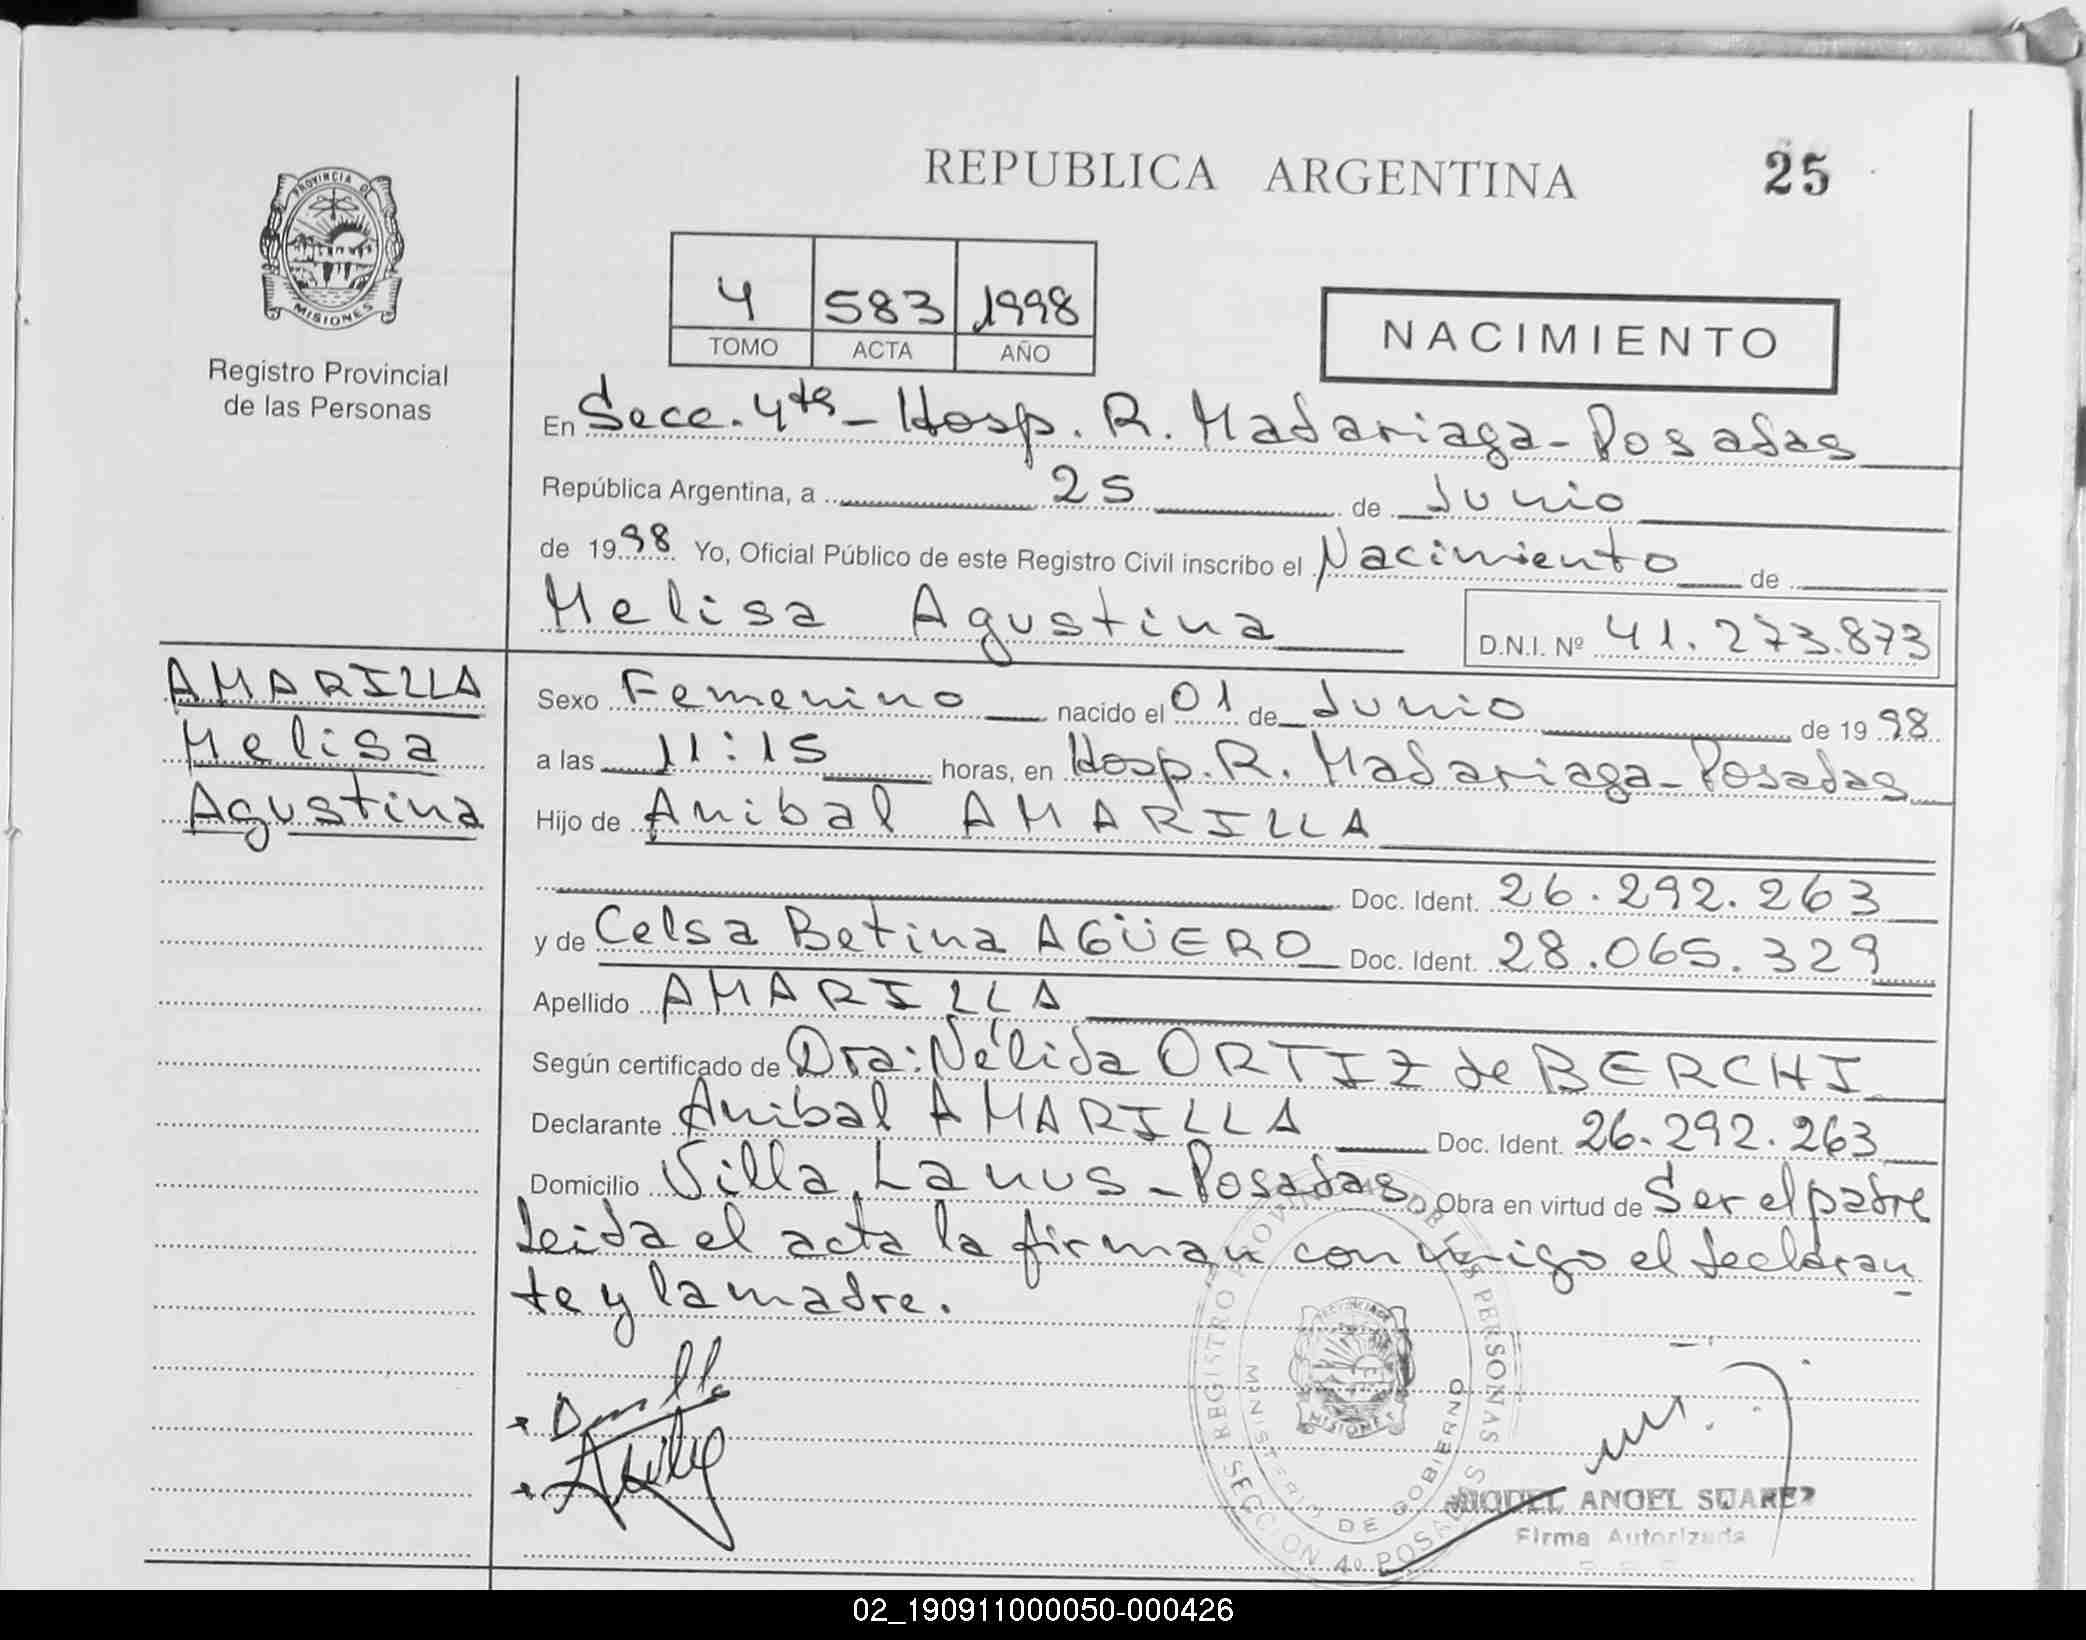 REPUBLICA ARGENTINA
25
PROVINCIA DE
MISIONES
Registro Provincial
de las Personas
4 583 1998
TOMO ACTA AÑO
NACIMIENTO
En Secc. 4ta - Hosp. R. Madariaga - Posadas
República Argentina, a 25 de Junio
de 1998 Yo, Oficial Público de este Registro Civil inscribo el Nacimiento de
Melisa Agustina D.N.I. Nº 41.273.873
AMARILLA
Melisa
Agustina
Sexo Femenino nacido el 01 de Junio de 1998
a las 11:15 horas, en Hosp. R. Madariaga - Posadas
Hijo de Anibal AMARILLA
Doc. Ident. 26.292.263
y de Celsa Betina AGÜERO Doc. Ident. 28.065.329
Apellido AMARILLA
Según certificado de Dra: Nélida ORTIZ de BERCHI
Declarante Anibal AMARILLA Doc. Ident. 26.292.263
Domicilio Villa Lanus - Posadas Obra en virtud de Ser el padre
Leida el acta la firman conmigo el declaran
te y la madre.
REGISTRO PROVINCIAL DE LAS PERSONAS
MINISTERIO DE GOBIERNO
MISIONES
SECCION 4º POSADAS
MIGUEL ANGEL SUAREZ
Firma Autorizada
02_190911000050-000426